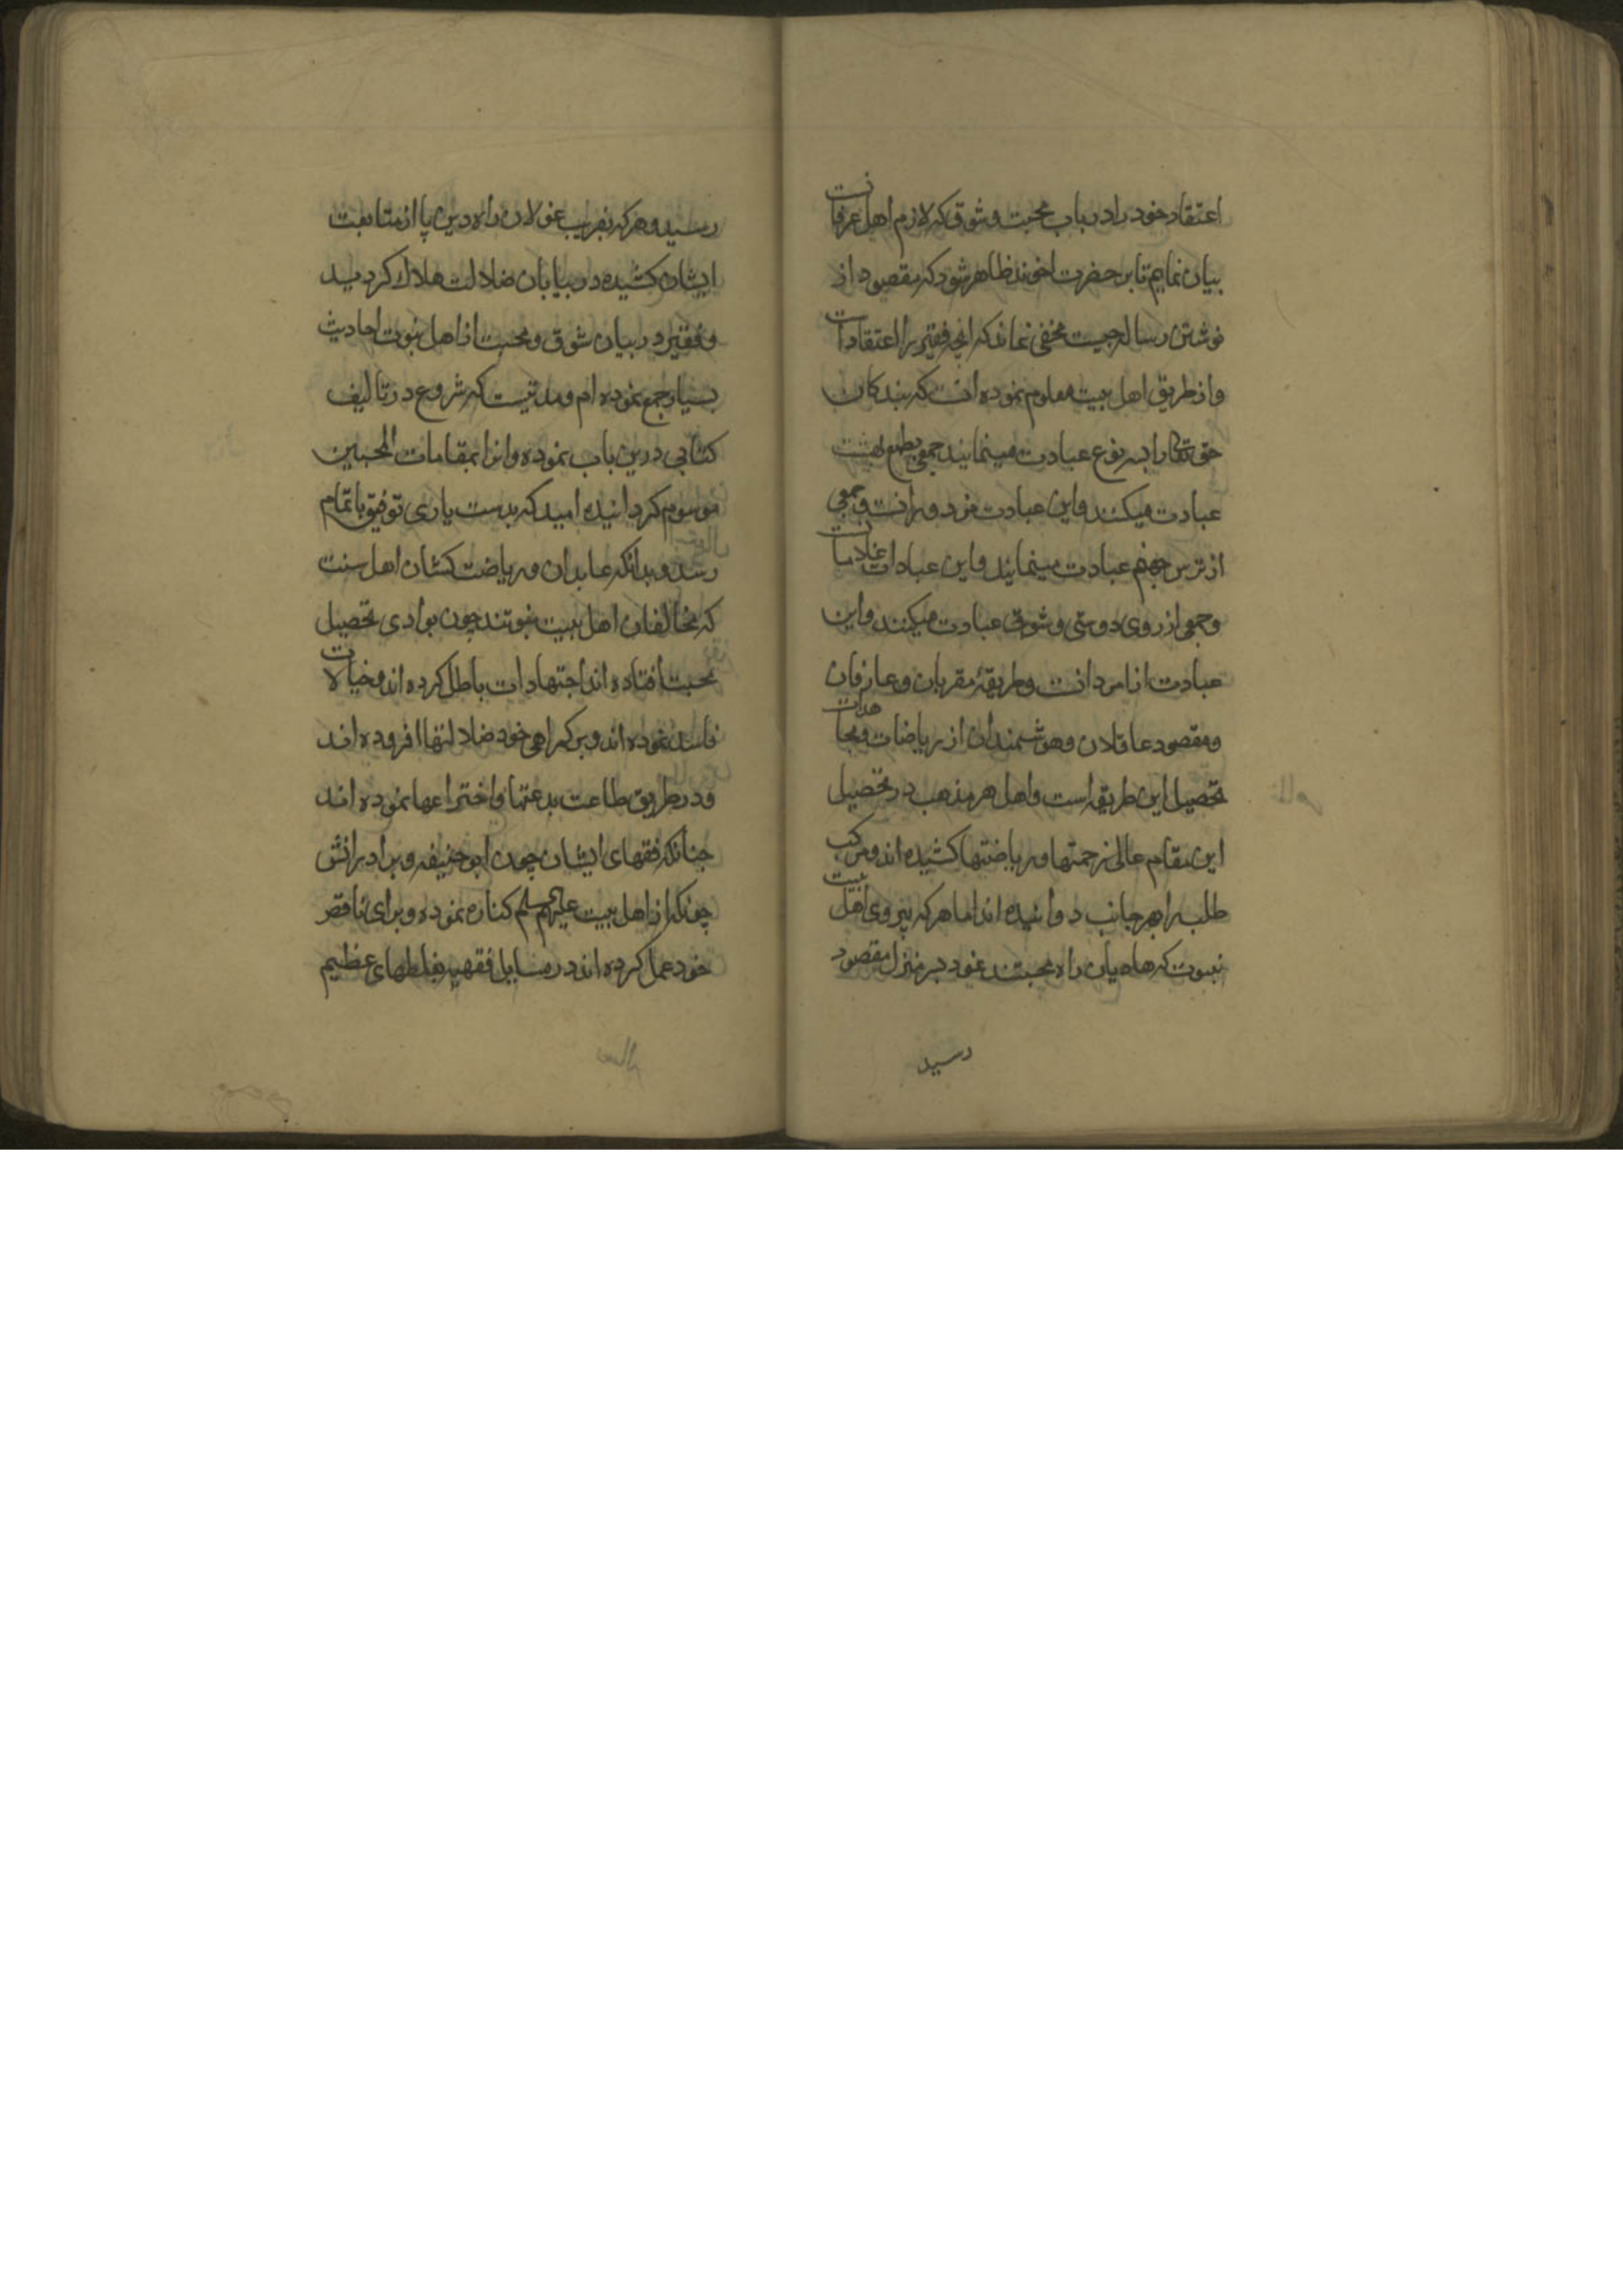 اعتقاد خود را در باب محبت و شوق که لازم اهل عرفانست
بیان نمایم تا بر حضرت اخوند ظاهر شود که مقصود از
نوشتن رساله چیست مخفی نماند که انچه فقیر را اعتقاد است
و از طریق اهل بیت معلوم نموده انست که بندکان
حق تعالی را بسه نوع عبادت مینمایند جمعی بطمع بهشت
عبادت میکنند و این عبادت مزدورانست و جمعی
از ترس جهنم عبادت مینمایند و این عبادات غلامانست
و جمعی از روی دوستی و شوق عبادت میکنند و این
عبادت ازامردانست و طریقهٔ مقربان و عارفان
و مقصود عاقلان و هوشمندان از ریاضات و مجاهدات
تحصیل این طریقه است و اهل هر مذهب در تحصیل
این مقام عالی زحمتها و ریاضتها کشیده اند و مرکب
طلب را بهر جانب دوانیده اند اما هر که پیروی اهل بیت
نبوت که هادیان راه محبتند نمود بسر منزل مقصود
رسید
رسید و هر که بفریب غولان راه دین پا از متابعت
ایشان کشیده در بیابان ضلالت هلاک کردید
و فقیر در بیان شوق و محبت از اهل نبوت احادیث
بسیار جمع نموده ام و مدتیست که شروع در تالیف
کتابی درین باب نموده و انرا بمقامات المحبین
موسوم کردانیده امید که بدست یاری توفیق باتمام
رسد و بدانکه عابدان و ریاضت کشان اهل سنت
که مخالفان اهل بیت نبوتند چون بوادی تحصیل
محبت افتاده اند اجتهادات باطل کرده اند و خیالات
فاسد نموده اند و بر کمراهی خود ضلالتها افزوده اند
و در طریق طاعت بدعتها و اختراعها نموده اند
چنانکه فقهای ایشان چون ابو حنیفه و برادرانش
چونکه از اهل بیت علیهم السلم کناره نموده و برای ناقص
خود عمل کرده اند در مسایل فقهیه بغلطهای عظیم